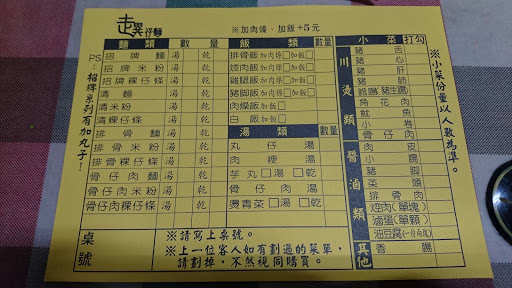 走異仔麵
※加肉燥、加飯+5元
PS:招牌系列有加丸子!
麵類 數量
招牌麵 湯 乾
招牌米粉 湯 乾
招牌粿仔條 湯 乾
清麵 湯 乾
清米粉 湯 乾
清粿仔條 湯 乾
排骨麵 湯 乾
排骨米粉 湯 乾
排骨粿仔條 湯 乾
骨仔肉麵 湯 乾
骨仔肉米粉 湯 乾
骨仔肉粿仔條 湯 乾
飯類 數量
排骨飯 加肉燥□加飯□
焢肉飯 加肉燥□加飯□
雞腿飯 加肉燥□加飯□
豬腳飯 加肉燥□加飯□
肉燥飯 加飯□
白飯 加飯□
湯類 數量
丸仔湯
肉粳湯
芋丸□湯 □乾
骨仔肉湯
燙青菜□湯 □乾
小菜 打勾
川燙類
豬舌
豬心
豬肝
豬肺
角花肉
魷魚
小卷
骨仔肉
醬滷類
肉皮
小腸
豬腳
菜頭
排骨肉
焢肉(單塊)
滷蛋(單顆)
油豆腐(一份兩塊)
其他
香腸
※小菜份量以人數為準。
桌號
※請寫上桌號。
※上一位客人如有劃過的菜單,
請劃掉,不然視同購買。